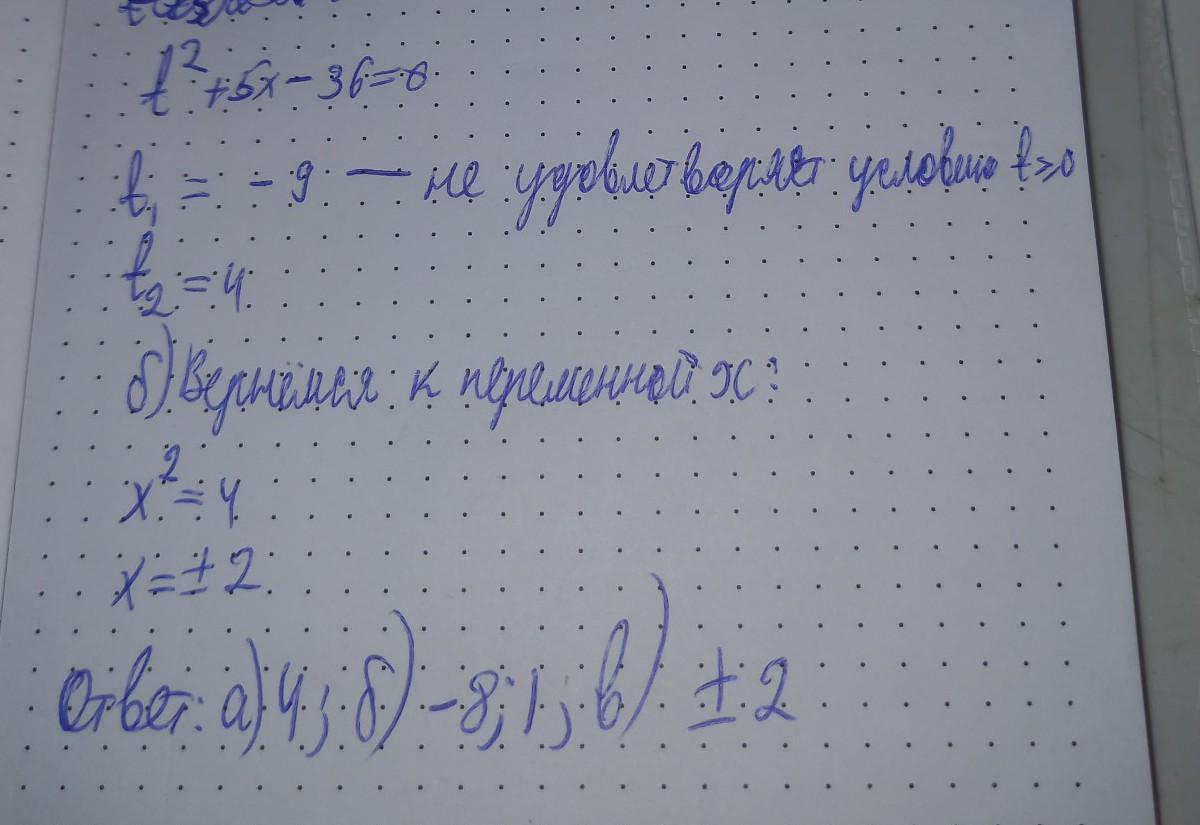 t²+5x-36=0
t₁ = -9 — не удовлетворяет условию t≥0
t₂ = 4
б) Вернёмся к переменной x:
x²=4
x=±2
Ответ: а) 4; б) -8; 1; в) ±2